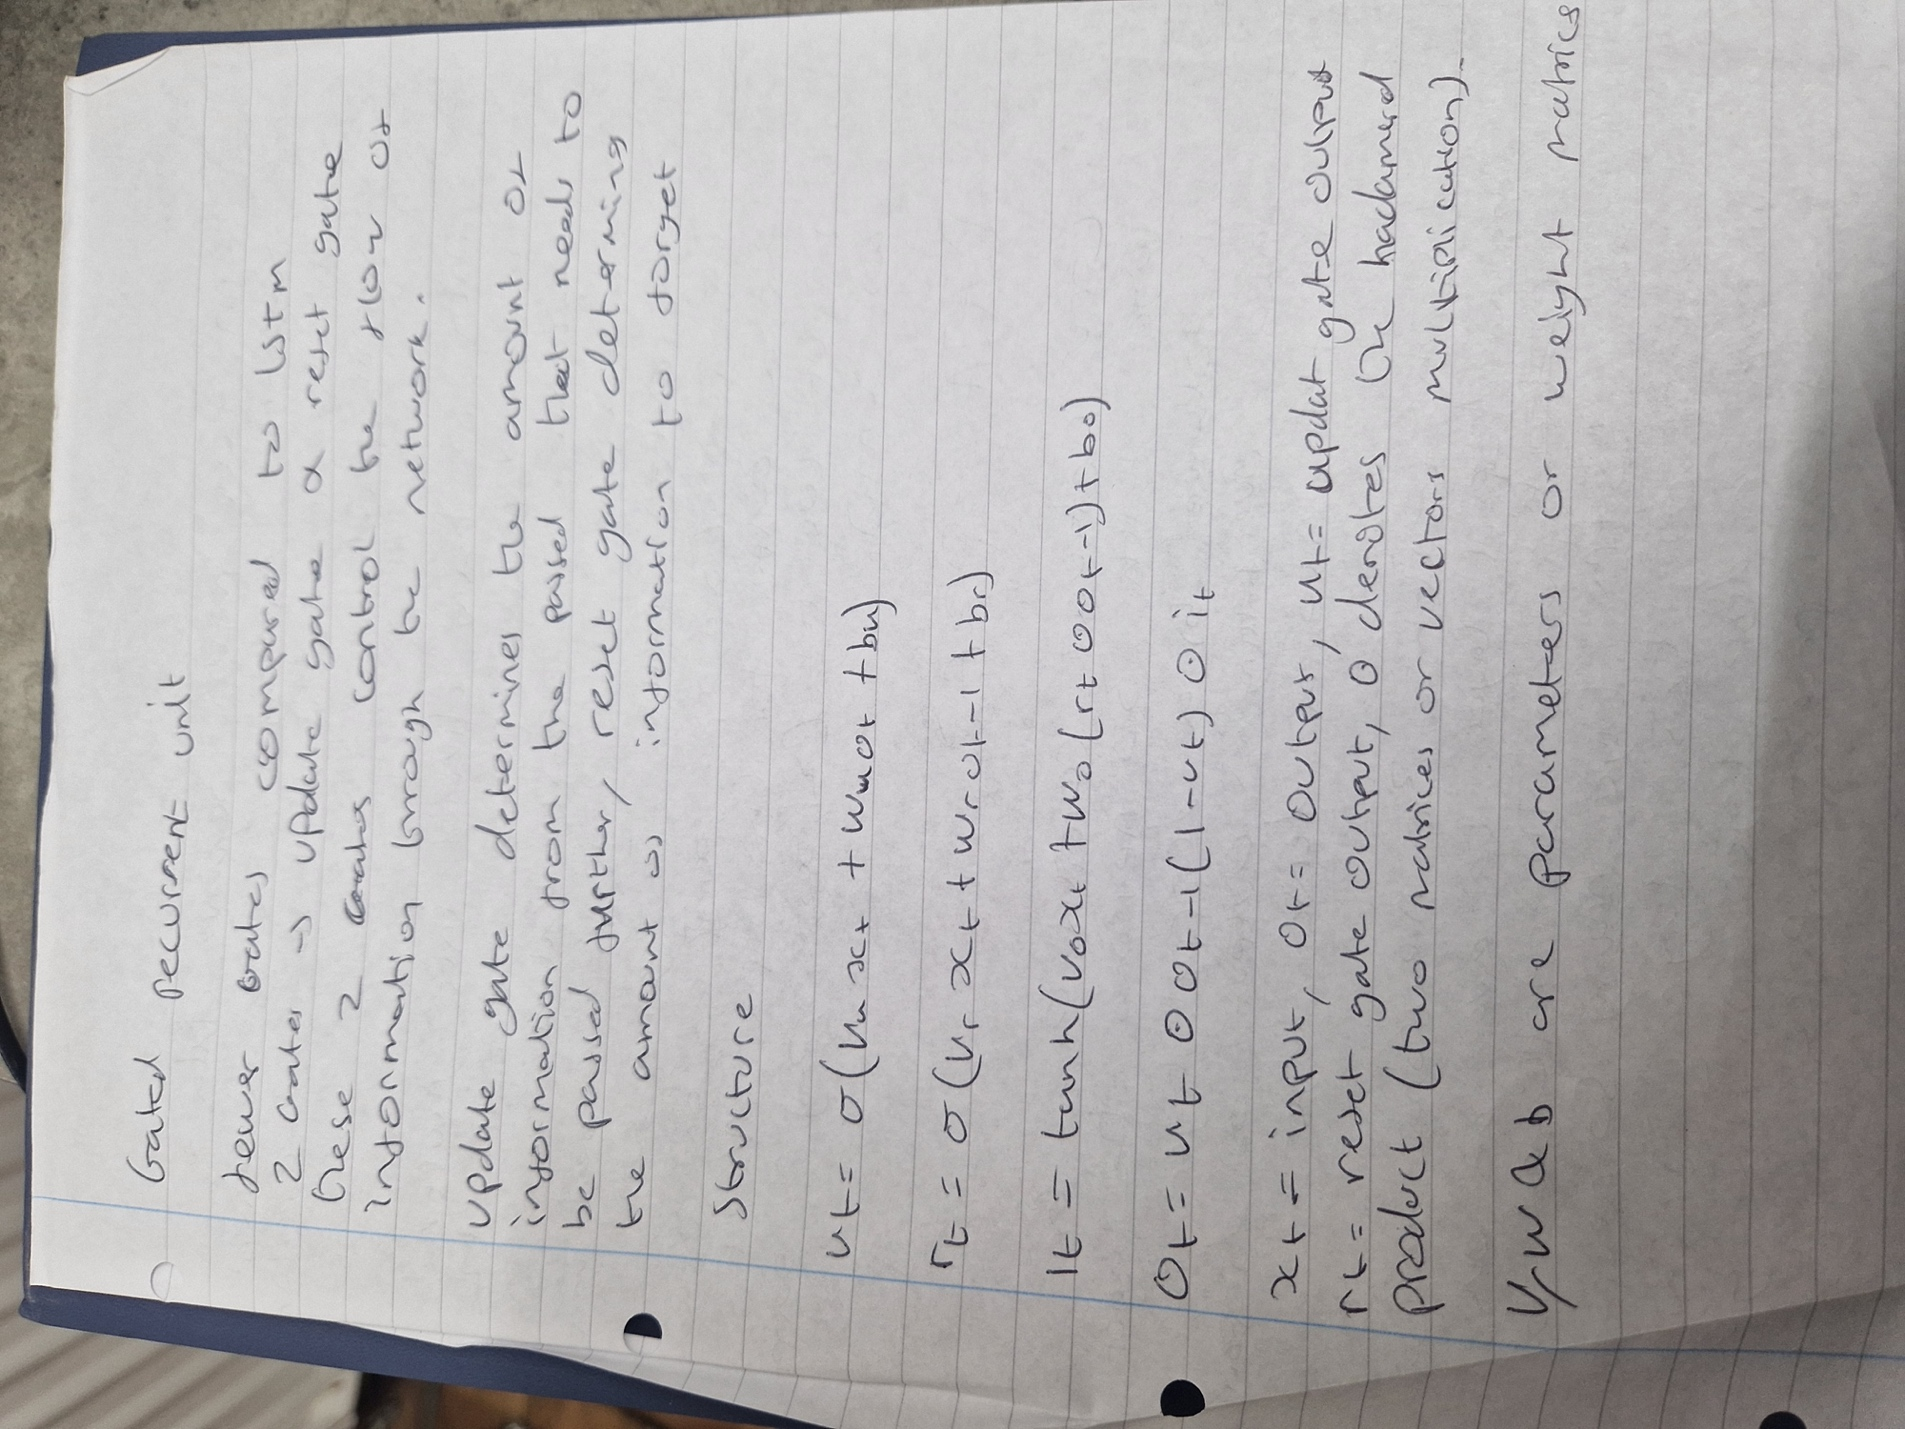 Gated recurrent unit
fewer gates compared to lstm
2 gates → update gate & reset gate
these 2 gates control the flow of
information through the network.
update gate determines the amount of
information from the passed that needs to
be passed further, reset gate determins
the amount of information to forget
Structure
ut = σ(Vu xt + Wuot + bu)
rt = σ(Vr xt + Wr ot-1 + br)
it = tanh(Voxt + Wo(rt ⊙ ot-1) + bo)
Ot = ut ⊙ Ot-1 (1-ut) ⊙ it
xt = input, Ot = output, ut = updat gate output
rt = reset gate output, ⊙ denotes the hadamard
product (two matrices or vectors multiplication).
V,W & b are parameters or weight matrics